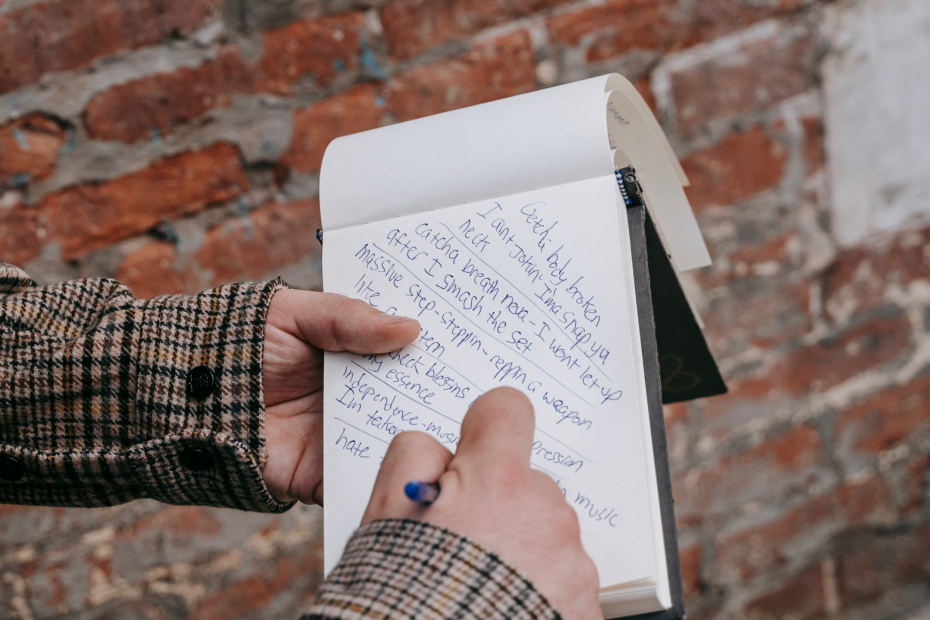 Getcha body broken
I aint Jokin-Ima snap ya
neck
catcha breath nova-I won't let up
after I smash the set
massive step-steppin-reppin a weapon
like a
check blessins
my essence
independence-music
I'm music
hate